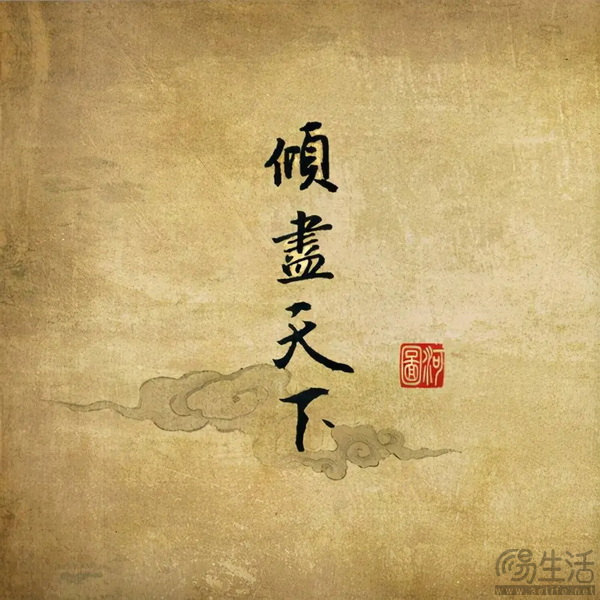 傾盡天下
河圖
易生活